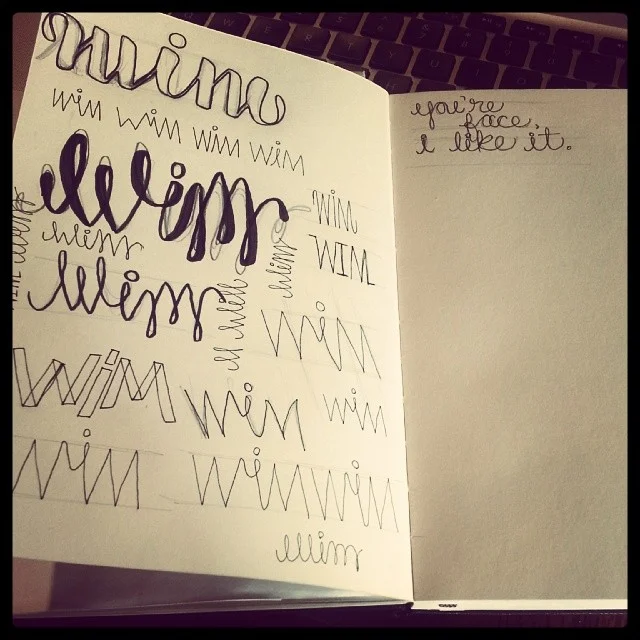 wim
wim wim wim wim
wim
wim
wim
wim
WIML
wim
wim
wim
wim
wim
wim
wimwim
wim
you're
face.
i like it.